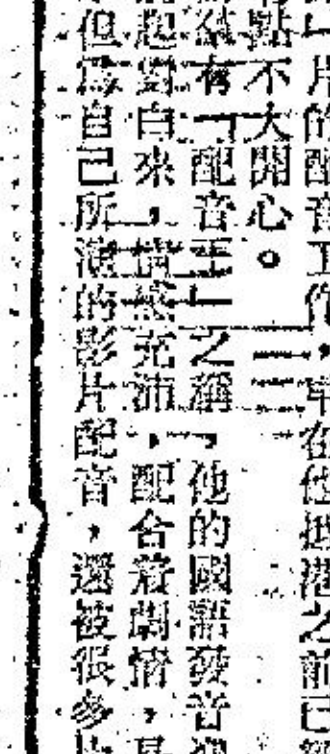 片的配音工作,早在他抵港之前已
點不大開心。
有「配音王」之稱,他的國語發音
起對白來,情感充沛,配合着劇情,
但為自己所演的影片配音,還被很多